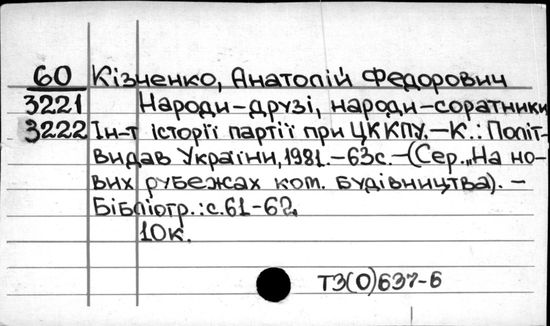 60 Кізченко, Анатолій Федорович
3221 Народи-друзі, народи-соратники
3222 Ін-т історії партії при ЦК КПУ.-К.: Політ-
видав України, 1981.-63с.-(Сер. „На но-
вих рубежах ком. будівництва). -
Бібліогр.: с.61-62.
10к.
ТЗ(0)637-6